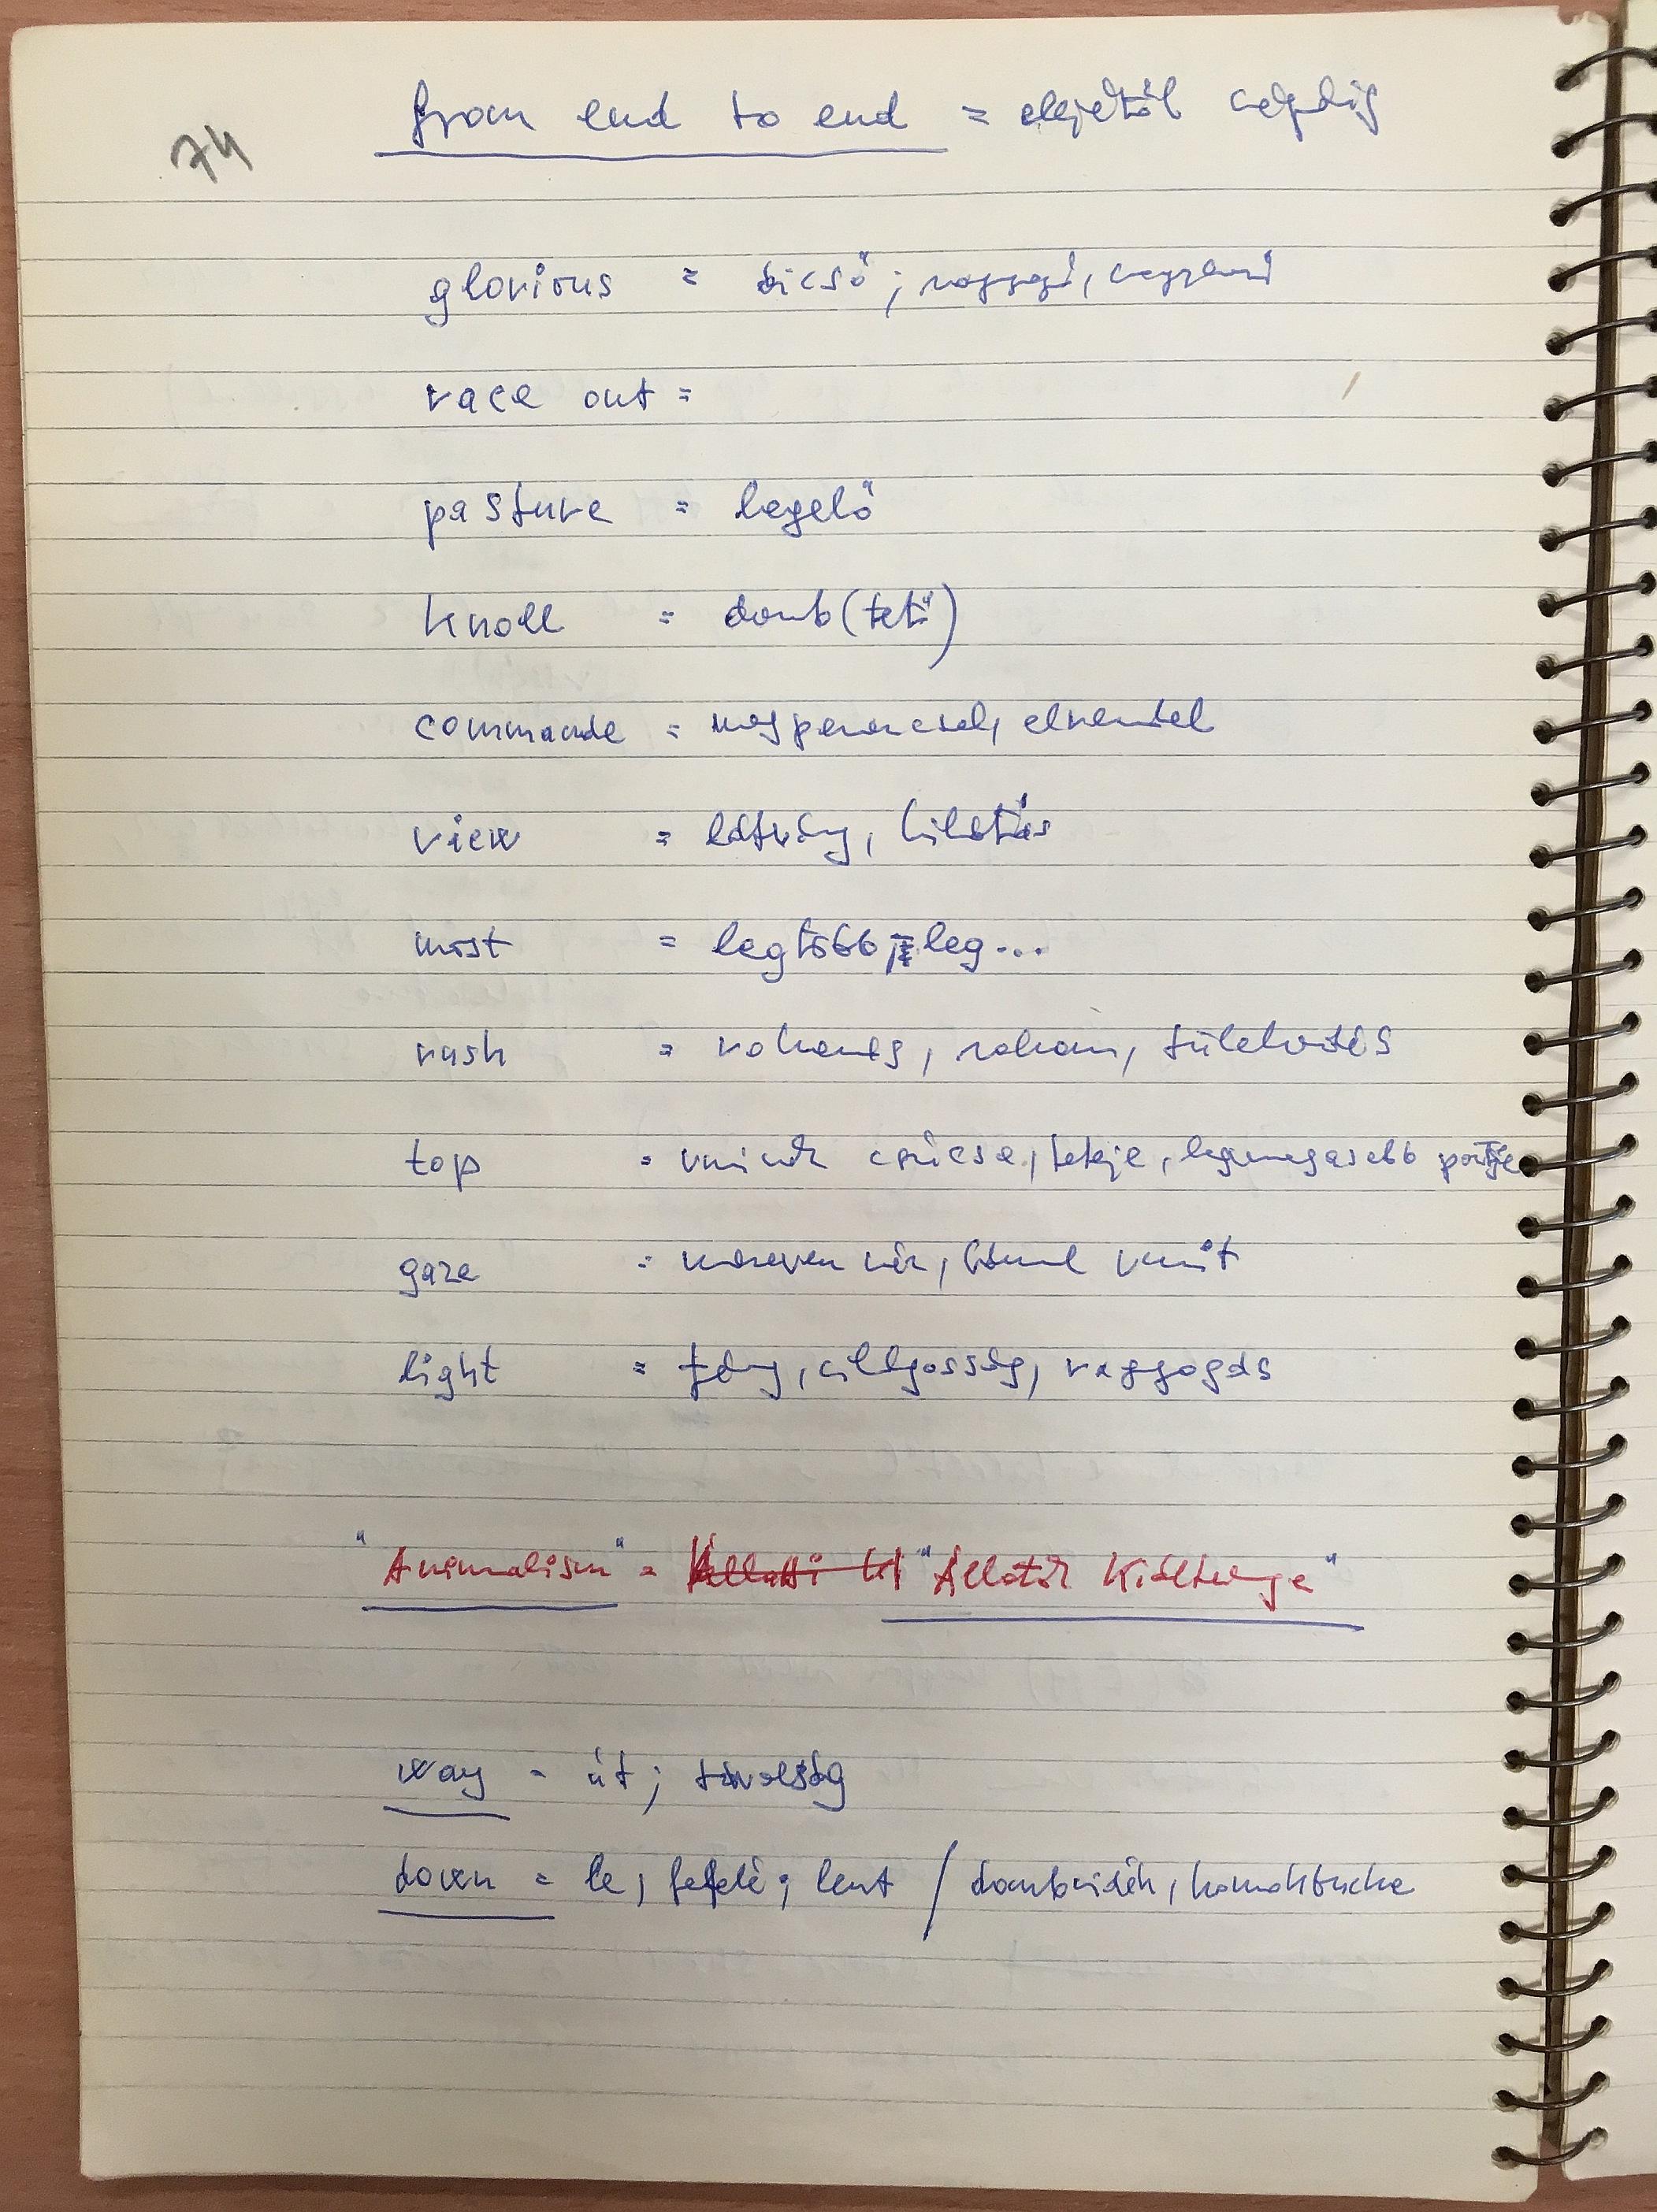 74
from end to end = elejétől végéig
glorious = dicső; ragyogó, nagyszerű
race out =
pasture = legelő
knoll = domb(tető)
commande = megparancsol, elrendel
view = látvány, kilátás
most = legtöbb; leg...
rush = rohanás, roham, tülekedés
top = vminek csúcsa, teteje, legmagasabb pontja
gaze = mereven néz, bámul vmit
light = fény, világosság, ragyogás
"Animalism" = Állati ki "Állatok Kiáltványa"
way = út; távolság
down = le, lefelé; lent / dombvidék, homokbucka